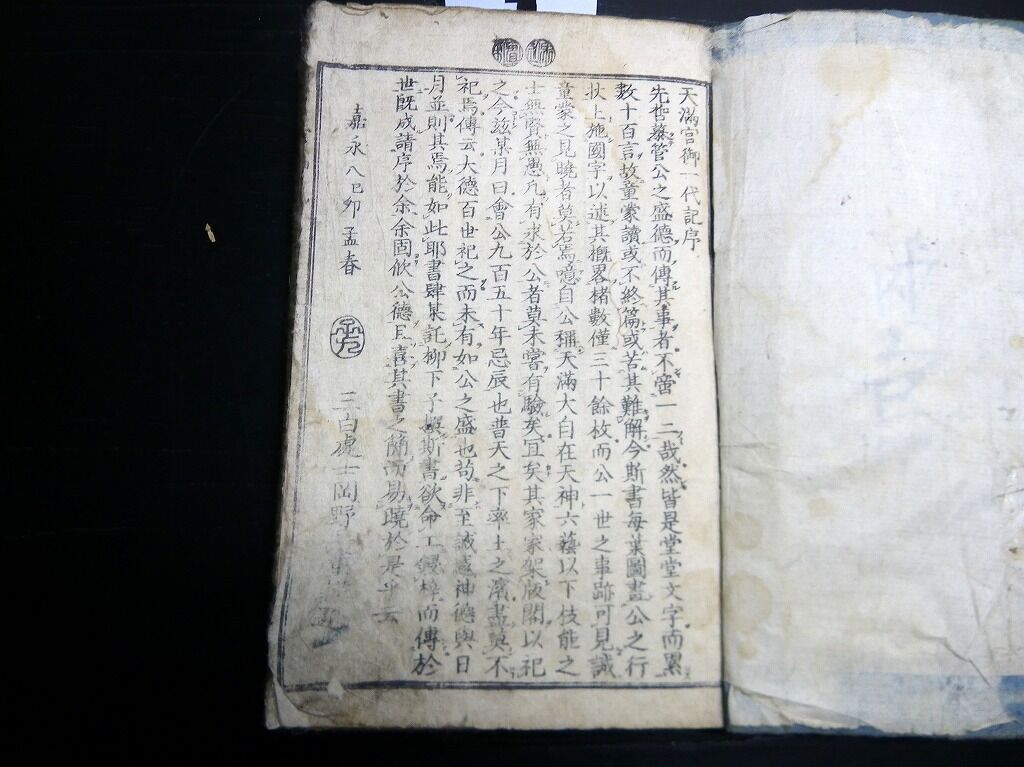 天滿宮御一代記序
先哲慕管公之盛德而傳其事者不啻一二哉然皆是堂堂文字而累
數十百言故童蒙讀或不終篇或苦其難解今斯書每葉圖畫公之行
狀上施國字以述其概畧楮數僅三十餘枚而公一世之事跡可見誠
童蒙之見曉者莫若焉噫自公稱天滿大自在天神六藝以下伎能之
士無賢無愚凡有求於公者莫未嘗有驗矣宜矣其家家架版閣以祀
之今茲某月日會公九百五十年忌辰也普天之下率土之濱盡莫不
祀焉傳云大德百世祀之而未有如公之盛也苟非至誠感神德與日
月並則其焉能如此耶書肆某託柳下子撰斯書欲命工鋟梓而傳於
世既成請序於余余固欽公德且喜其書之簡而易曉於是乎云
嘉永八乙卯孟春
三白處士岡野